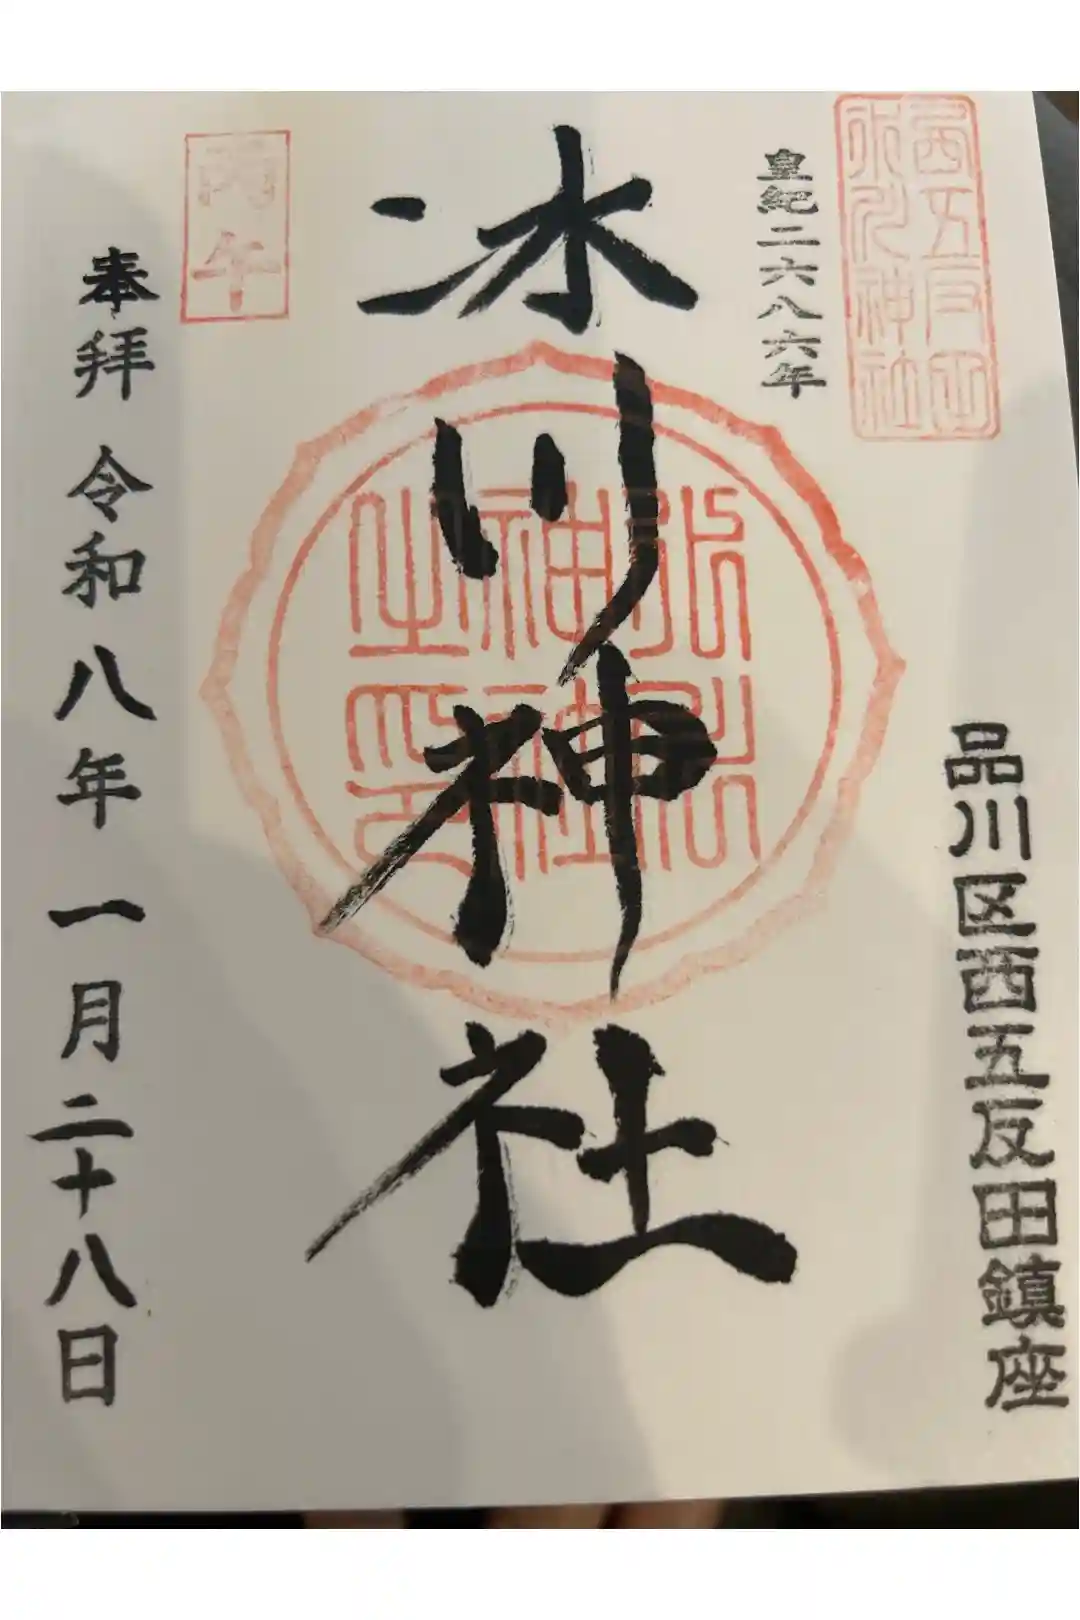 西五反田
氷川神社
皇紀二六八六年
品川区西五反田鎮座
氷川神社
氷川
神社
之印
丙午
奉拝 令和八年 一月二十八日